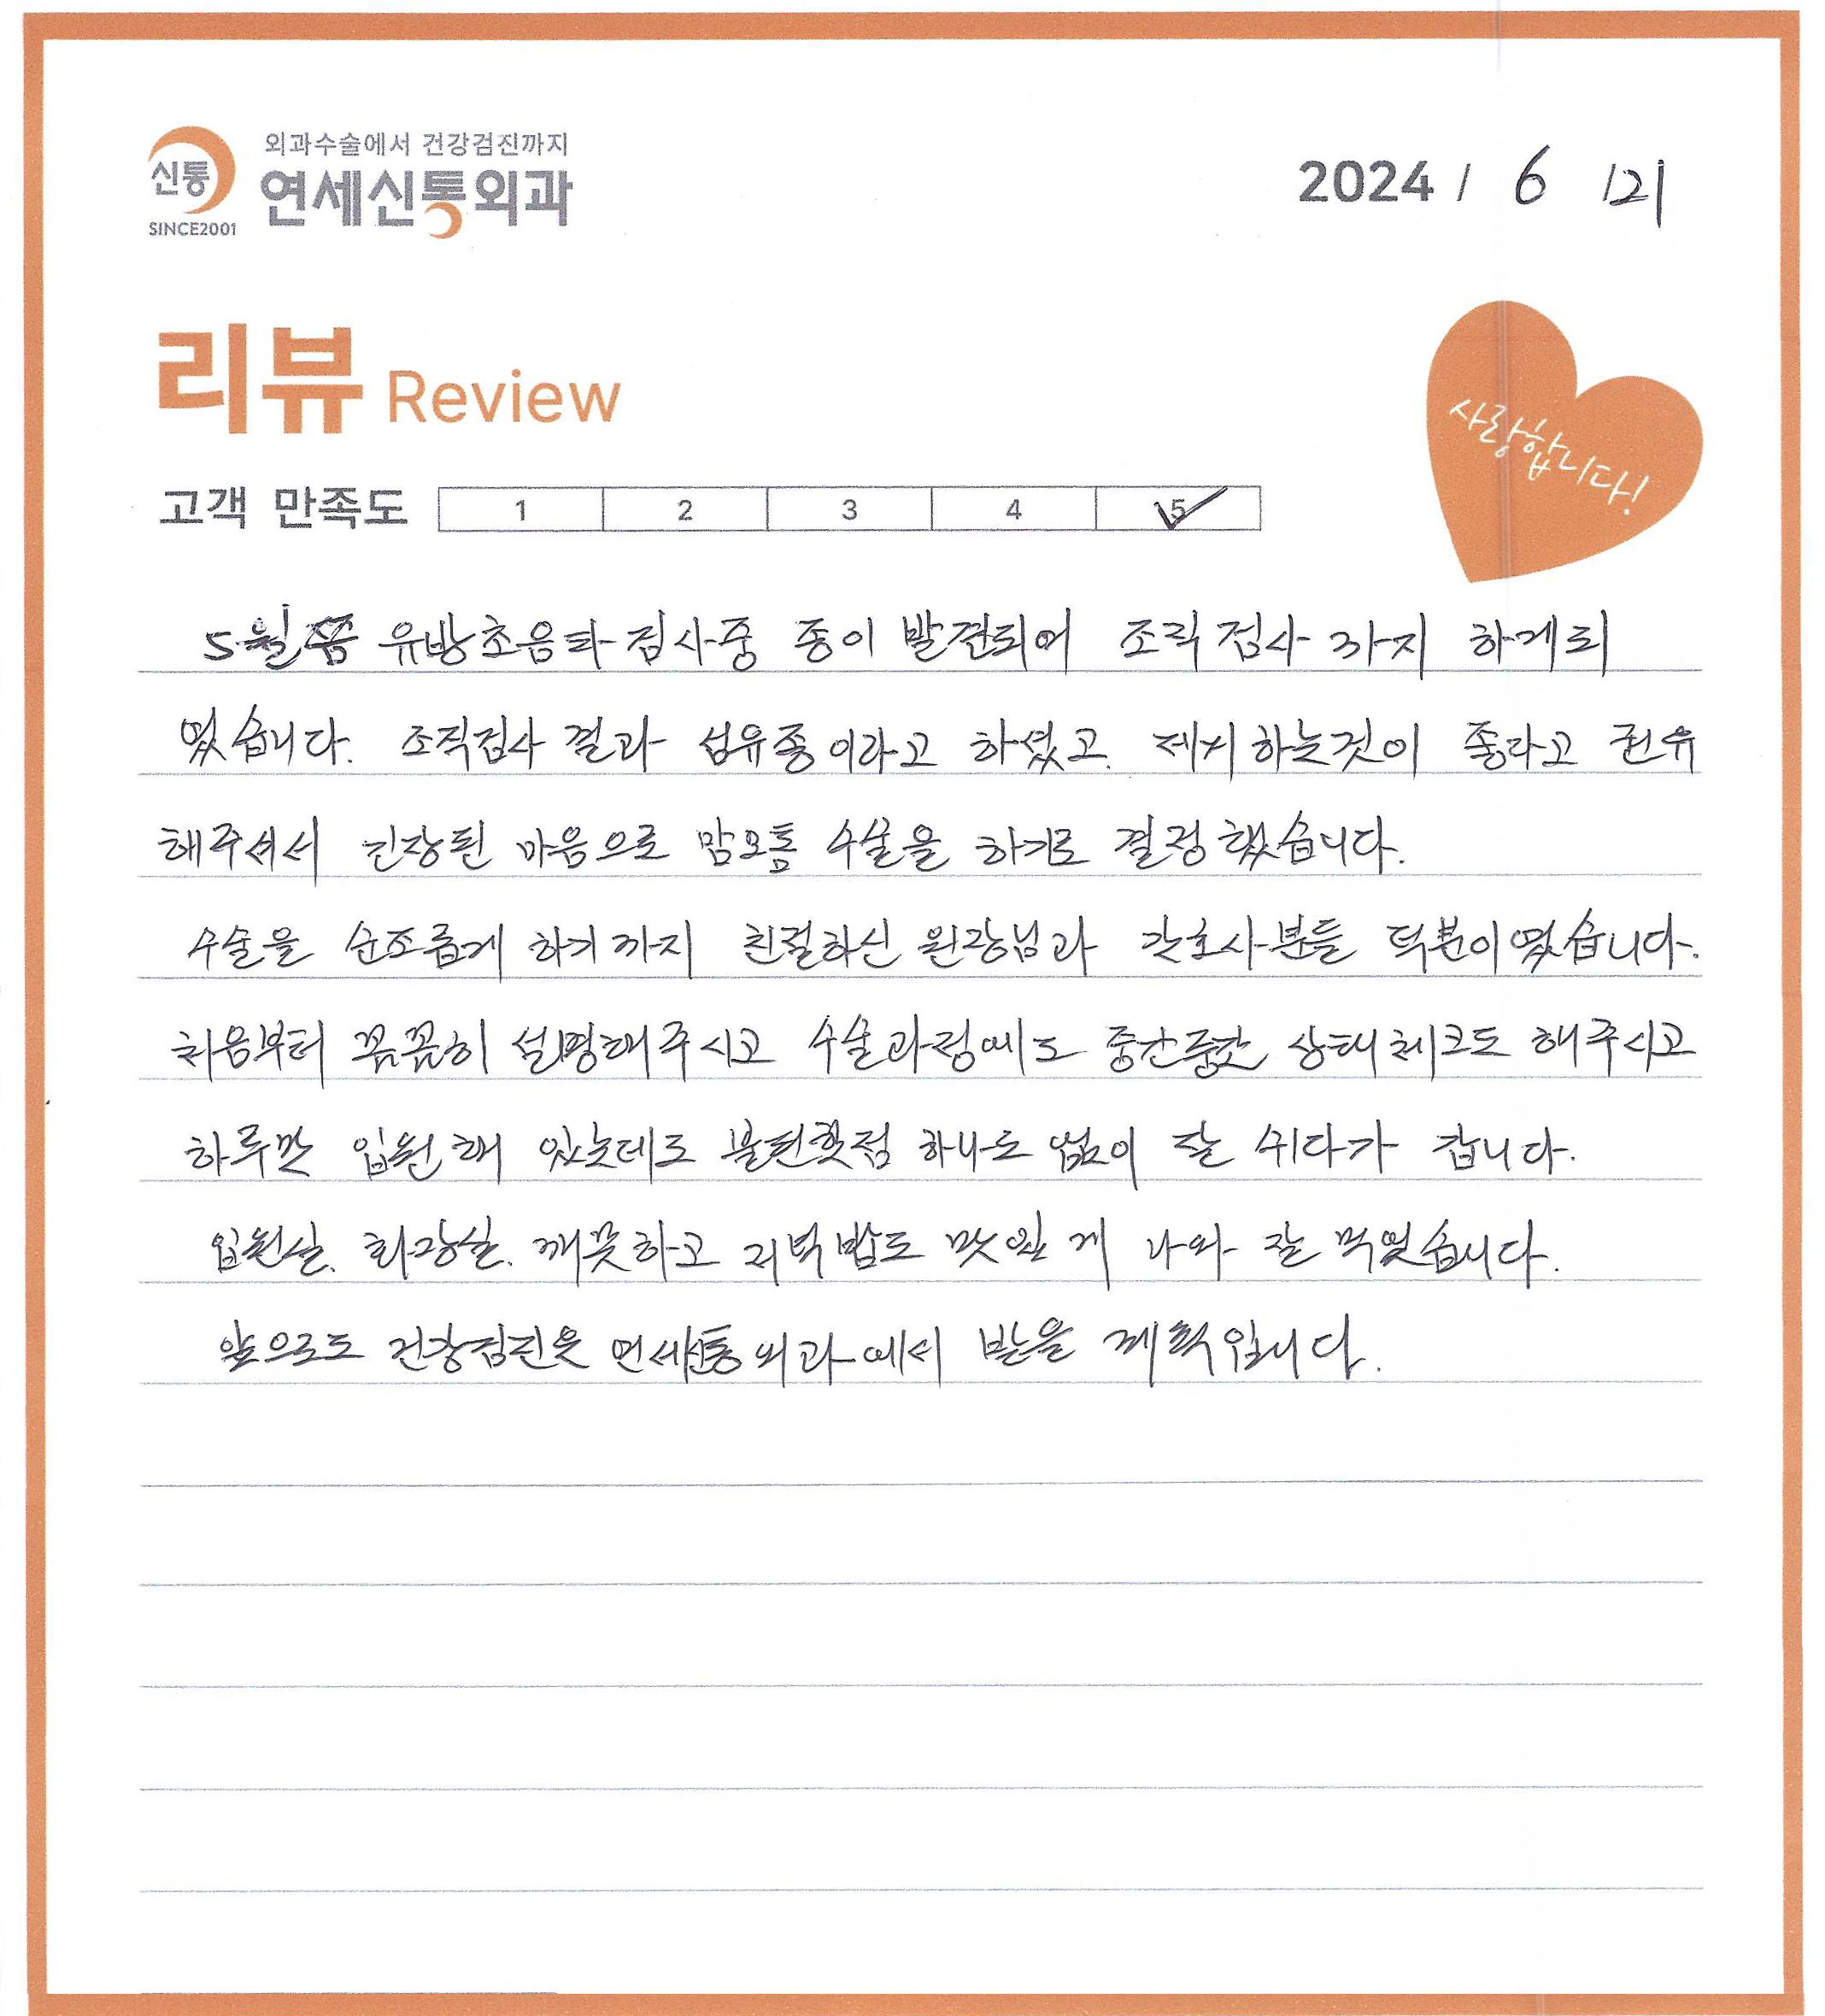 외과수술에서 건강검진까지
신통
연세신통외과
SINCE2001
2024 / 6 /21
리뷰 Review
사랑합니다!
고객 만족도 1 2 3 4 5
5월쯤 유방초음파검사중 종이 발견되어 조직검사까지 하게되
었습니다. 조직검사 결과 섬유종이라고 하셨고. 제거하는것이 좋다고 권유
해주셔서 긴장된 마음으로 맘모톰 수술을 하기로 결정했습니다.
수술을 순조롭게 하기까지 친절하신 원장님과 간호사분들 덕분이였습니다.
처음부터 꼼꼼히 설명해주시고 수술과정에도 중간중간 상태체크도 해주시고
하루만 입원해 있는데도 불편한점 하나도 없이 잘 쉬다가 갑니다.
입원실. 화장실. 깨끗하고 저녁밥도 맛있게 나와 잘 먹었습니다.
앞으로도 건강검진은 연세신통외과에서 받을 계획입니다.